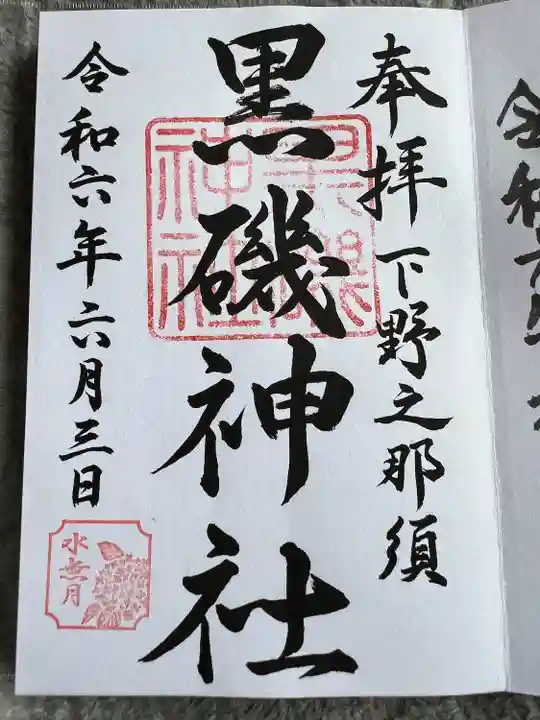 奉拝 下野之那須
黒磯神社
黒磯
神社
令和六年六月三日
水無月